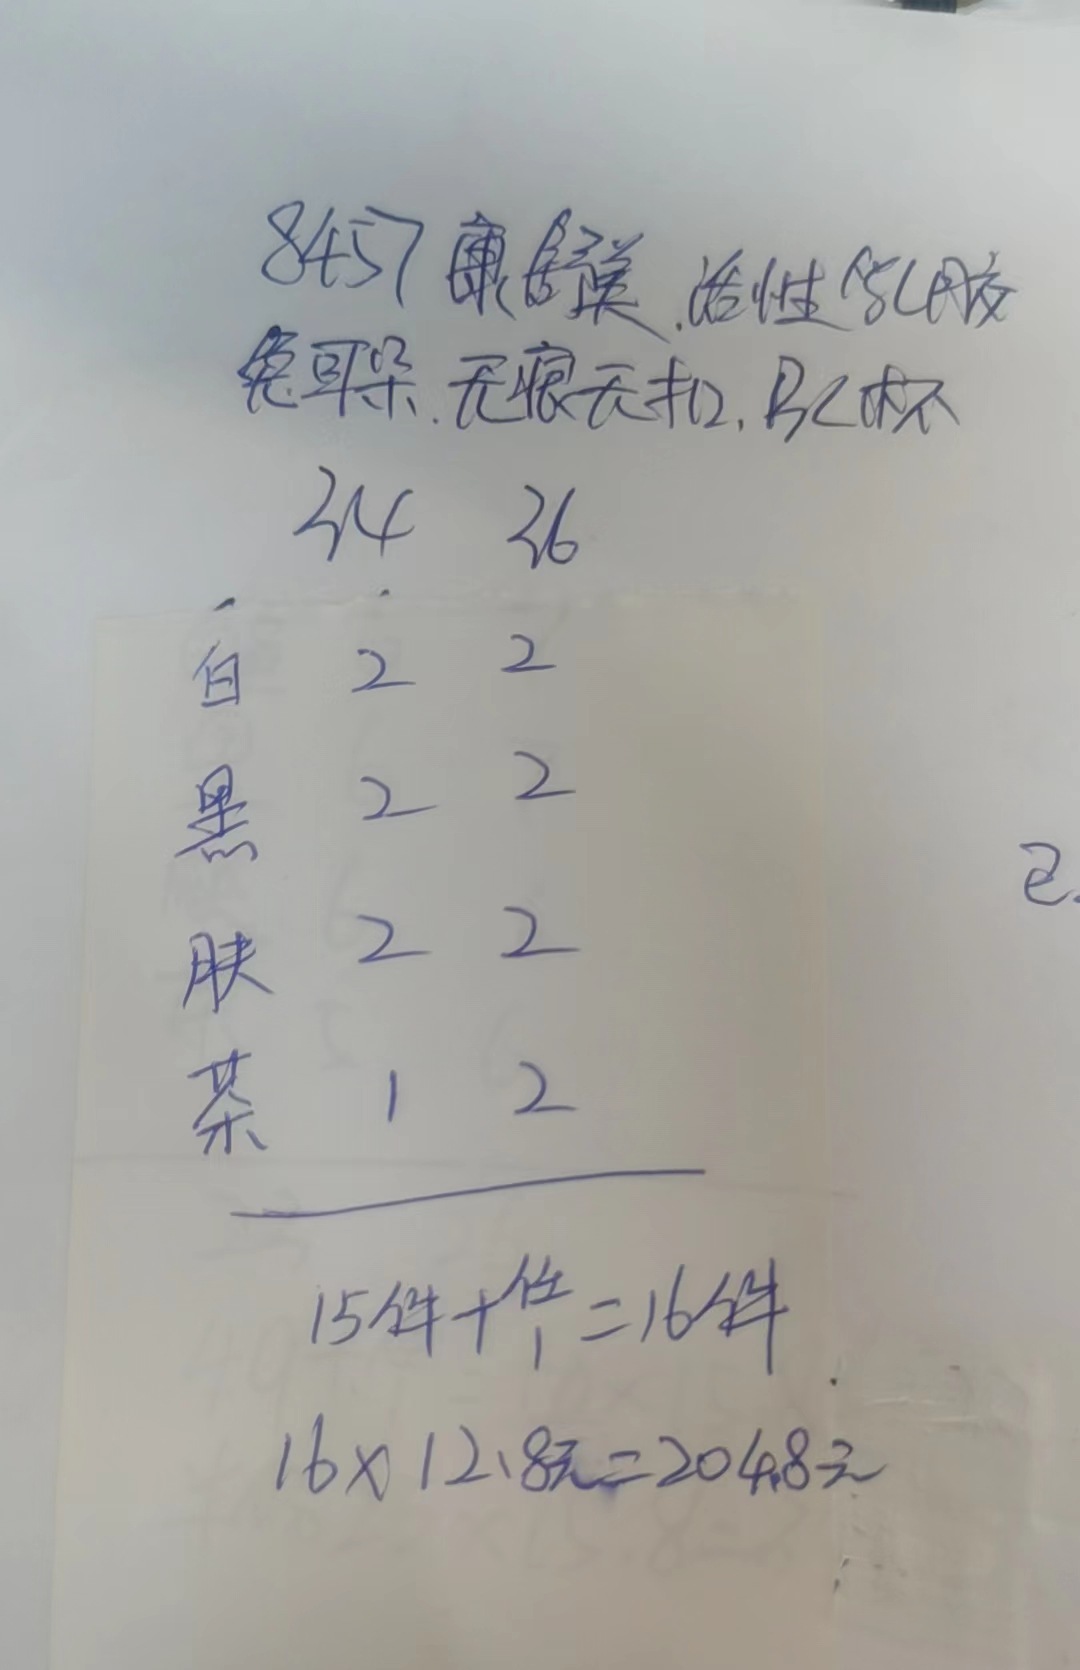 8457康舒美.活性乳胶
兔耳朵.无痕无扣,BC杯
34 36
白 2 2
黑 2 2
肤 2 2
茶 1 2
15件+竹1=16件
16×12.8元=204.8元
已.